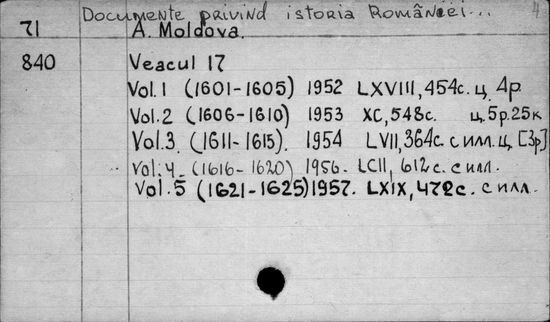 Documente privind istoria României... 4
71 A. Moldova.
840 Veacul 17
Vol. 1 (1601-1605) 1952 LXVIII, 454с. ц. 4р.
Vol. 2 (1606-1610) 1953 XC, 548с. ц. 5р. 25к
Vol. 3. (1611-1615). 1954 LVII, 364с. с илл. ц. [3р]
Vol. 4. (1616-1620) 1956. LCII, 612с. с илл.
Vol. 5 (1621-1625) 1957. LXIX, 472с. с илл.